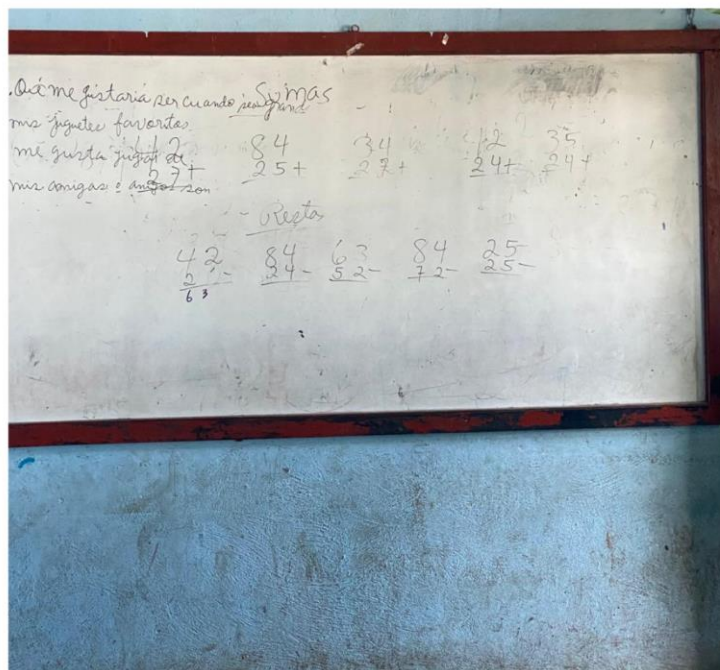 .Qué me gustaria ser cuando sea grand
mis juguetes favoritos
me gusta jugar de
mis amigas o amigos son
Sumas
42 84 34 42 35
27+ 25+ 27+ 24+ 24+
Resta
42 84 63 84 25
2 - 24- 52- 72- 25-
63